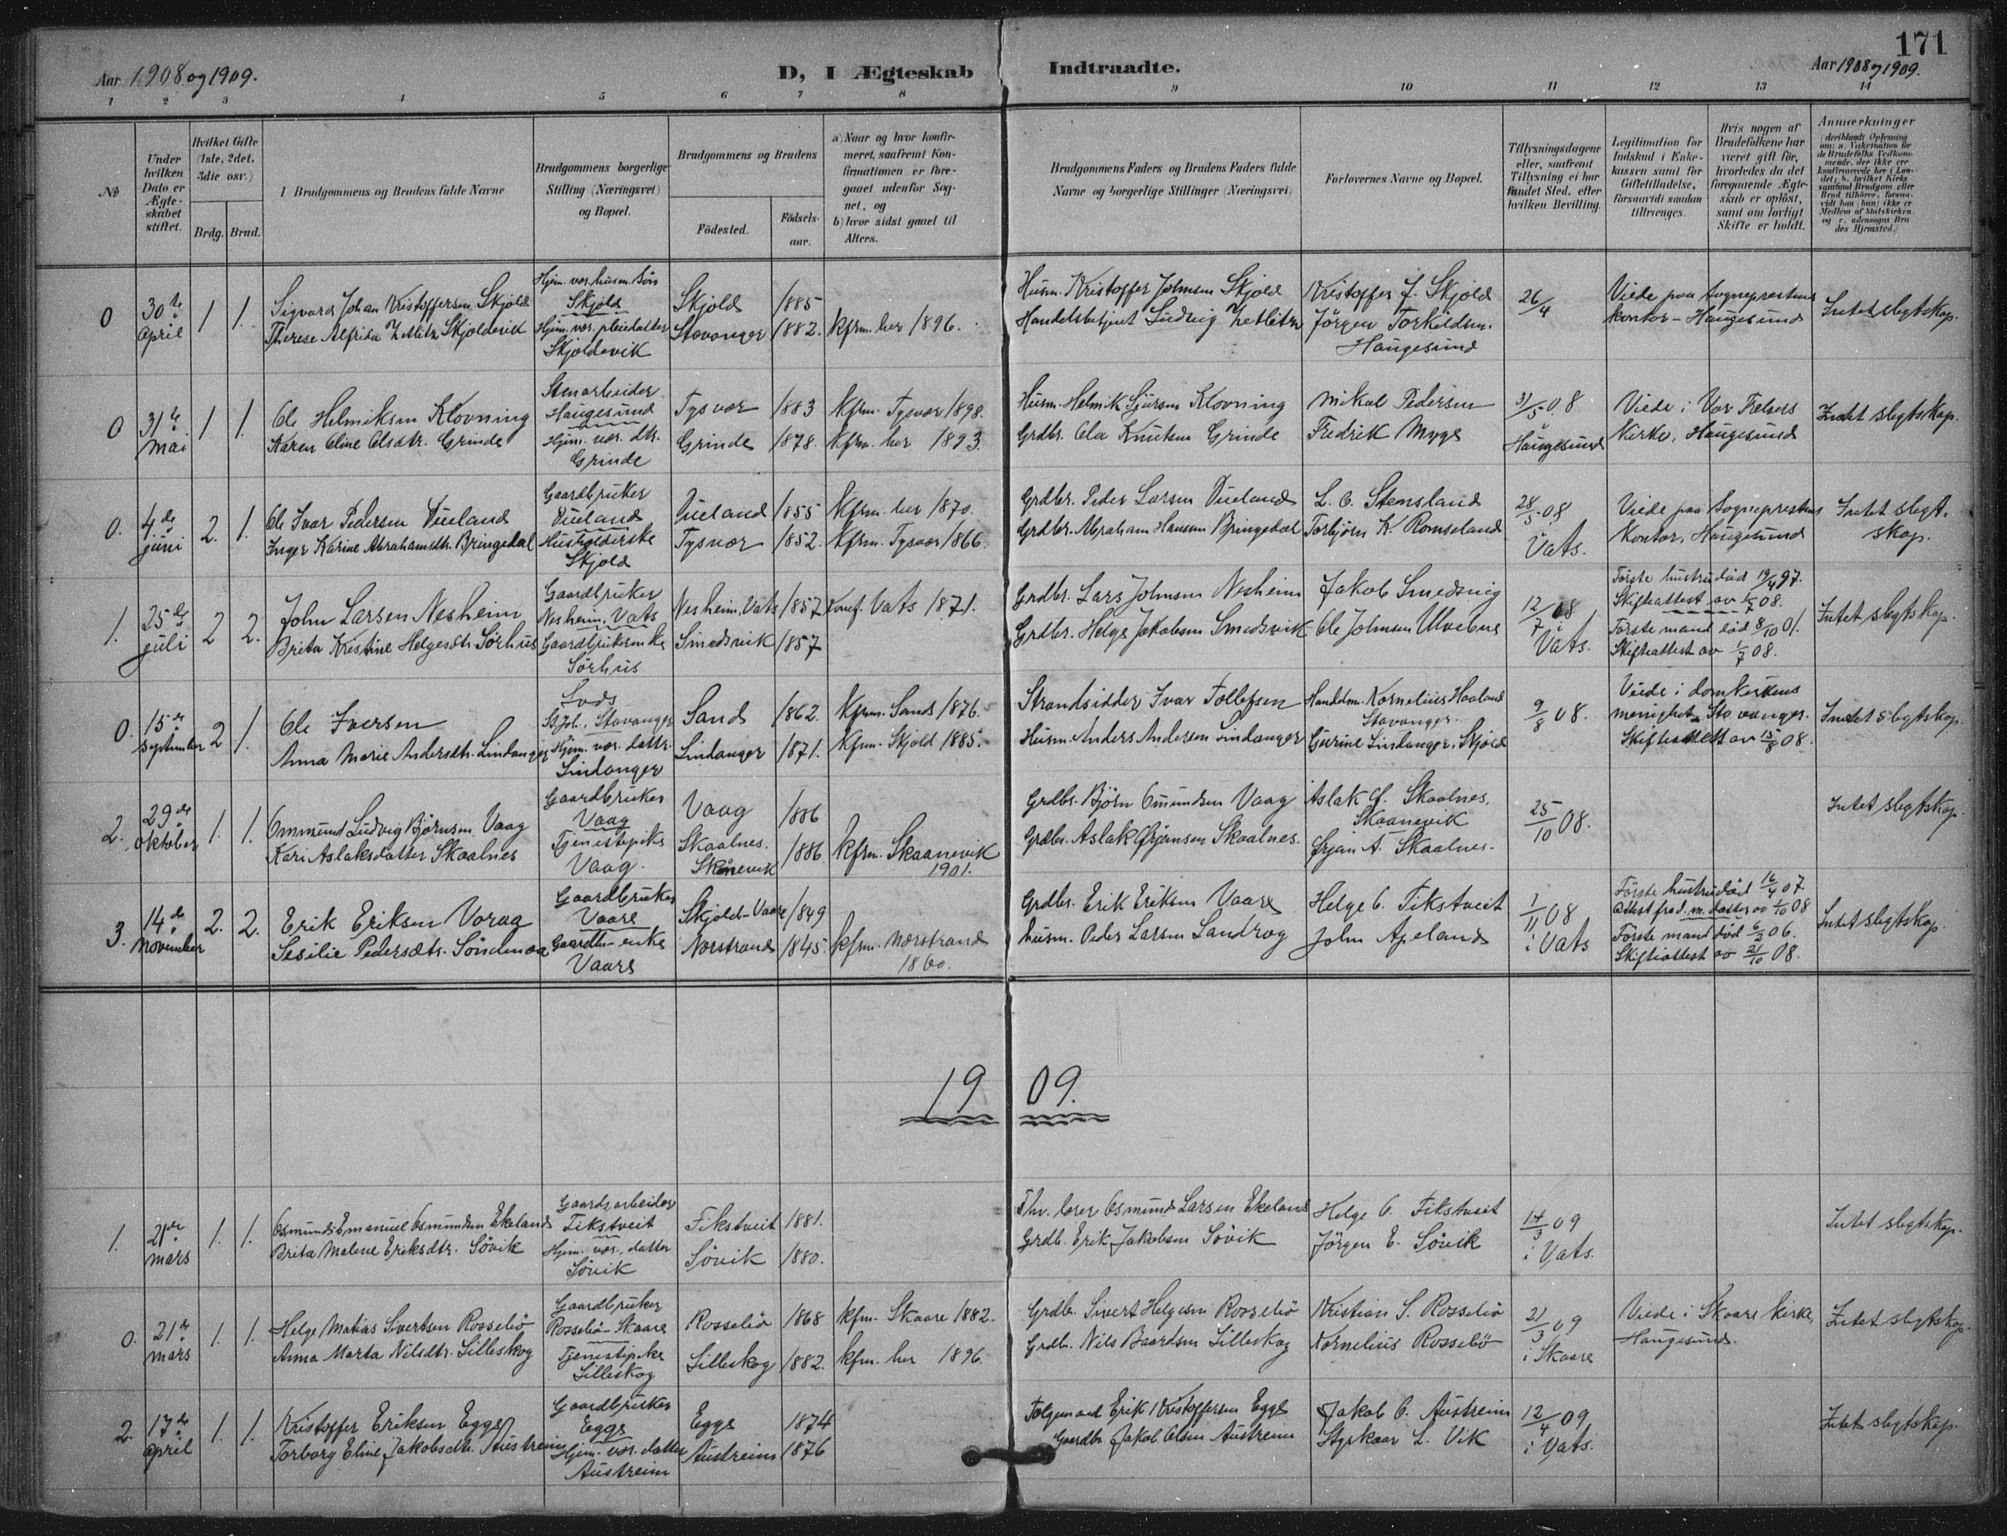 171
Aar 1908 og 1909.
D, I Ægteskab Indtraadte.
Aar 1908 og 1909.
1 2 3 4 5 6 7 8 9 10 11 12 13 14
№
Under hvilken Dato er Ægteskabet stiftet.
Hvilket Gifte (1ste, 2det, 3die osv.)
Brdg. Brud.
Brudgommens og Brudens fulde Navne
Brudgommens borgerlige Stilling (Næringsvei) og Bopæl.
Brudgommens og Brudens
Födested.
Födselsaar.
a) Naar og hvor konfirmeret, saafremt Konfirmationen er foregaaet udenfor Sognet, og
b) hvor sidst gaaet til Alters.
Brudgommens Faders og Brudens Faders fulde Navne og borgerlige Stillinger (Næringsvei)
Forlovernes Navne og Bopæl.
Tillysningsdagene eller, saafremt Tillysning ei har fundet Sted, efter hvilken Bevilling.
Legitimation for Indskud i Enkekassen samt for Giftetilladelse, forsaavidt saadan tiltrænges.
Hvis nogen af Brudefolkene har været gift för, hvorledes da det foregaaende Ægteskab er oplöst, samt om lovligt Skifte er holdt.
Anmærkninger
0 30te april 1 1.
Sigvard Johan Kristoffersen Skjold
Therese Alfrida Zetlitz Skjoldevik
Hjem. vær. husm. sön
Skjold
Hjem. vær. pleiedatter
Skjoldevik
Skjold 1885
Stavanger 1882. kfrm. her 1896.
Husm. Kristoffer Johnsen Skjold
Handelsbetjent Ludvig Zetlitz
Kristoffer J. Skjold
Jörgen Torkildsen.
Haugesund
26/4
Viede paa Sogneprestens
kontor - Haugesund
Intet slegtskap.
0 31te mai 1 1.
Ole Helmiksen Klovning
Karen Oline Olsdtr. Grinde
Stenarbeider
Haugesund
Hjem. vær. dtr.
Grinde
Tysvær 1883 kfrm. Tysvær 1898.
Grinde 1878. kfrm. her 1893.
Husm. Helmik Sjursen Klovning
Grdbr. Ola Knutsen Grinde
Mikal Pedersen
Fredrik Myge
31/5 08
Haugesund
Viede i Vor Frelsers
Kirke, Haugesund
Intet slegtskap.
0. 4de juni 2. 1.
Ole Ivar Pedersen Dueland
Inger Karine Abrahamsdtr. Bringedal
Gaardbruker
Dueland
Husholderske
Skjold
Dueland 1855 Kfrm. her 1870.
Tysvær 1852. Kfrm. Tysvær 1866.
Grdbr. Peder Larsen Dueland
Grdbr. Abraham Hansen Bringedal
L. O. Stensland
Torbjörn K. Romseland
28/5 08
i Vats.
Viede paa Sogneprestens
Kontor, Haugesund
Intet slegtskap.
1. 25de juli 2 2.
John Larsen Nesheim
Brita Kristine Helgesdtr. Sörhus
Gaardbruker
Nesheim, Vats
Gaardbrukerenke
Sörhus
Nesheim, Vats 1857 Konf. Vats 1871.
Smedsvik 1857
Grdbr. Lars Johnsen Nesheim
Grdbr. Helge Jakobsen Smedsvik
Jakob Smedsvig
Ole Johnsen Ulvebne
12/7 08
i Vats.
Förste hustru död 19/4 97.
Skifteattest av 1/7 08.
Förste mand död 8/10 01.
Skifteattest av 1/7 08.
Intet slegtskap.
0. 15de september 2 1.
Ole Iversen
Anna Marie Andersdtr. Lindanger
Stavanger
Hjem. vær. dattr.
Lindanger
Sand 1862. Kfrm. Sand 1876.
Lindanger 1871. Kfrm. Skjold 1885.
Strandsidder Ivar Tollefsen
Husm. Anders Andersen Lindanger
Handelsm. Kornelius Haaland
Stavanger.
Gurine Lindanger, Skjold
9/8 08.
Viede i domkirkens
menighet Stavanger.
Skifteattest av 15/8 08.
Intet slegtskap.
2. 29de oktober 1. 1.
Ommund Ludvig Björnsen Vaag
Kari Aslaksdatter Skaalnes
Gaardbruker
Vaag
Tjenestepike
Vaag.
Vaag 1886
Skaalnes. Skånevik 1886 kfrm. Skaanevik 1901.
Grdbr. Björn Omundsen Vaag
Grdbr. Aslak Örjansen Skaalnes.
Aslak Ö. Skaalnes.
Skaanevik
Örjan A. Skaalnes.
25/10 08.
Intet slegtskap
3. 14de november 2. 2.
Erik Eriksen Voraa
Sesilie Pedersdtr. Söndenaa
Gaardbruker
Vaare
Gaardbr-enke
Vaare
Skjold-Vaare 1849
Norstrand 1845. kfrm. Nærstrand 1860.
Grdbr. Erik Eriksen Vaare
Husm. Peder Larsen Sandvag
Helge O. Tikstveit
John Apeland
1/11 08
i Vats
Förste hustru död 16/4 07.
Förste mand död 6/3 06.
Skifteattest av 21/10 08.
Intet slegtskap.
19 09.
1. 21de mars 1. 1.
Osmund Emanuel Osmundsen Ekeland
Brita Malene Eriksdtr. Sövik
Gaardsarbeider
Tikstveit
Hjem. vær. datter
Sövik
Tikstveit 1881.
Sövik 1880.
Fhv. lærer Osmund Larsen Ekeland
Grdb. Erik Jakobsen Sövik
Helge O. Tikstveit
Jörgen E. Sövik
14/3 09
i Vats.
Intet slegtskap.
0. 21de mars 1. 1.
Helge Matias Sivertsen Rossebö
Anna Marta Nilsdtr. Silleskog
Gaardbruker
Rossebö - Skaare
Tjenestepike
Silleskog
Rossebö 1868 kfm. Skaare 1882.
Silleskog 1882. kfm. her 1896.
Grdbr. Sivert Helgesen Rossebö
Grdb. Nils Baardsen Silleskog
Kristian S. Rossebö
Kornelius Rossebö
21/3 09
i Skaare
Viede i Skaare Kirke,
Haugesund.
Intet slegtskap.
2. 17de april 1. 1.
Kristoffer Eriksen Egge
Torborg Eline Jakobsdtr. Austreim
Gaardbruker
Egge
Hjem. vær. datter
Austreim
Egge 1874
Austreim 1876
Folgemand Erik Kristoffersen Egge
Gaardbr. Jakob Olsen Austreim
Jakob O. Austreim
Styrkaar L. Vik
12/4 09
i Vats.
Intet slegtskap.